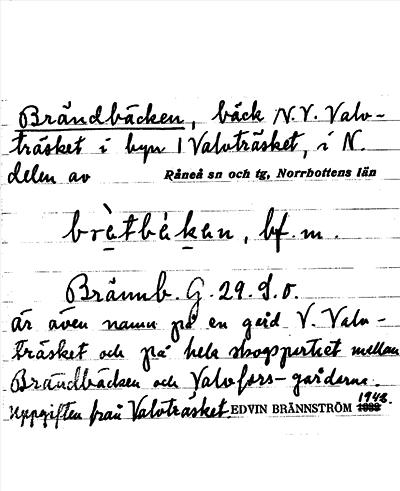 Brändbäcken, bäck N.V. Valv-
träsket i byn Valvträsket, i N.
delen av Råneå sn och tg, Norrbottens län
brètbɑ́kan, bf. m.
Brännb. G. 29. S. o.
är även namn på en gård V. Valv-
träsket och på hela skogspartiet mellan
Brändbäcken och Valvfors-gårdarna.
Uppgiften från Valvträsket. EDVIN BRÄNNSTRÖM 1943.